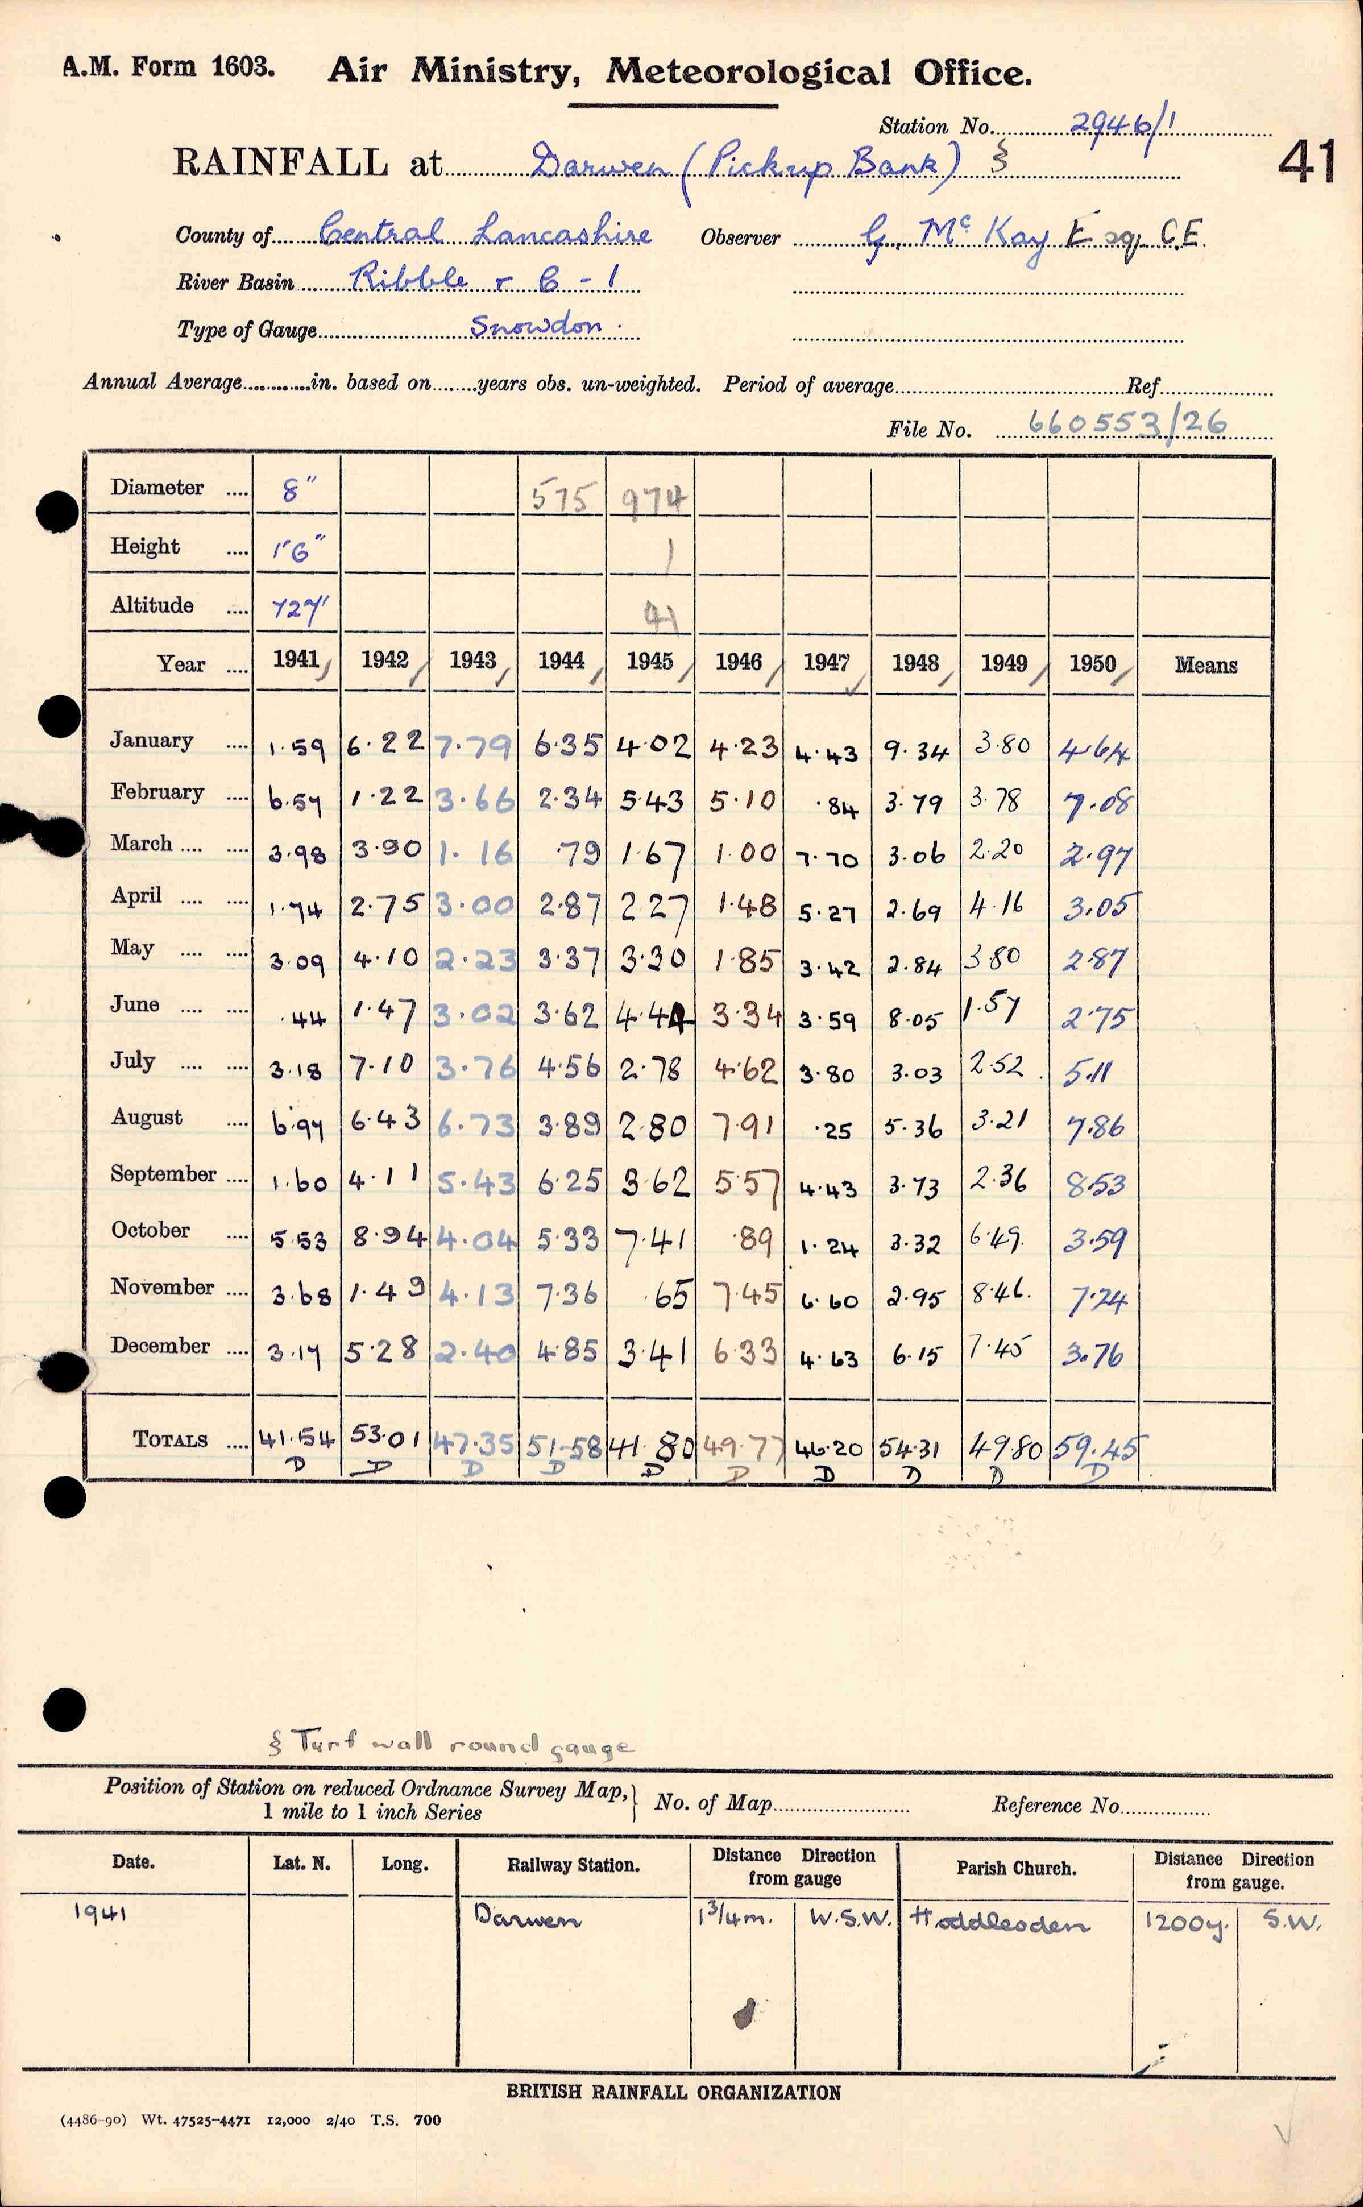 A.M. Form 1603. Air Ministry, Meteorological Office.
Station No. 2946/1
41
RAINFALL at Darwen (Pickup Bank) §
County of Central Lancashire Observer G. McKay Esq. C.E.
River Basin Ribble r 6 - 1
Type of Gauge Snowdon.
Annual Average in. based on years obs. un-weighted. Period of average Ref.
File No. 660553/26
Diameter 8" 575 974
Height 1'6" 1
Altitude 727' 41
Year 1941 1942 1943 1944 1945 1946 1947 1948 1949 1950 Means
January 1.59 6.22 7.79 6.35 4.02 4.23 4.43 9.34 3.80 4.64
February 6.57 1.22 3.66 2.34 5.43 5.10 .84 3.79 3.78 7.08
March 3.98 3.90 1.16 .79 1.67 1.00 7.70 3.06 2.20 2.97
April 1.74 2.75 3.00 2.87 2.27 1.48 5.27 2.69 4.16 3.05
May 3.09 4.10 2.23 3.37 3.30 1.85 3.42 2.84 3.80 2.87
June .44 1.47 3.02 3.62 4.44 3.34 3.59 8.05 1.57 2.75
July 3.18 7.10 3.76 4.56 2.78 4.62 3.80 3.03 2.52 5.11
August 6.97 6.43 6.73 3.89 2.80 7.91 .25 5.36 3.21 7.86
September 1.60 4.11 5.43 6.25 3.62 5.57 4.43 3.73 2.36 8.53
October 5.53 8.94 4.04 5.33 7.41 .89 1.24 3.32 6.49 3.59
November 3.68 1.49 4.13 7.36 .65 7.45 6.60 2.95 8.46 7.24
December 3.17 5.28 2.40 4.85 3.41 6.33 4.63 6.15 7.45 3.76
TOTALS 41.54 53.01 47.35 51.58 41.80 49.77 46.20 54.31 49.80 59.45
D D D D D D D D D D
§ Turf wall round gauge
Position of Station on reduced Ordnance Survey Map, 1 mile to 1 inch Series } No. of Map Reference No.
Date. Lat. N. Long. Railway Station. Distance Direction from gauge Parish Church. Distance Direction from gauge.
1941 Darwen 1 3/4 m. W.S.W. Hoddlesden 1200y. S.W.
BRITISH RAINFALL ORGANIZATION
(4486-90) Wt. 47525-4471 12,000 2/40 T.S. 700